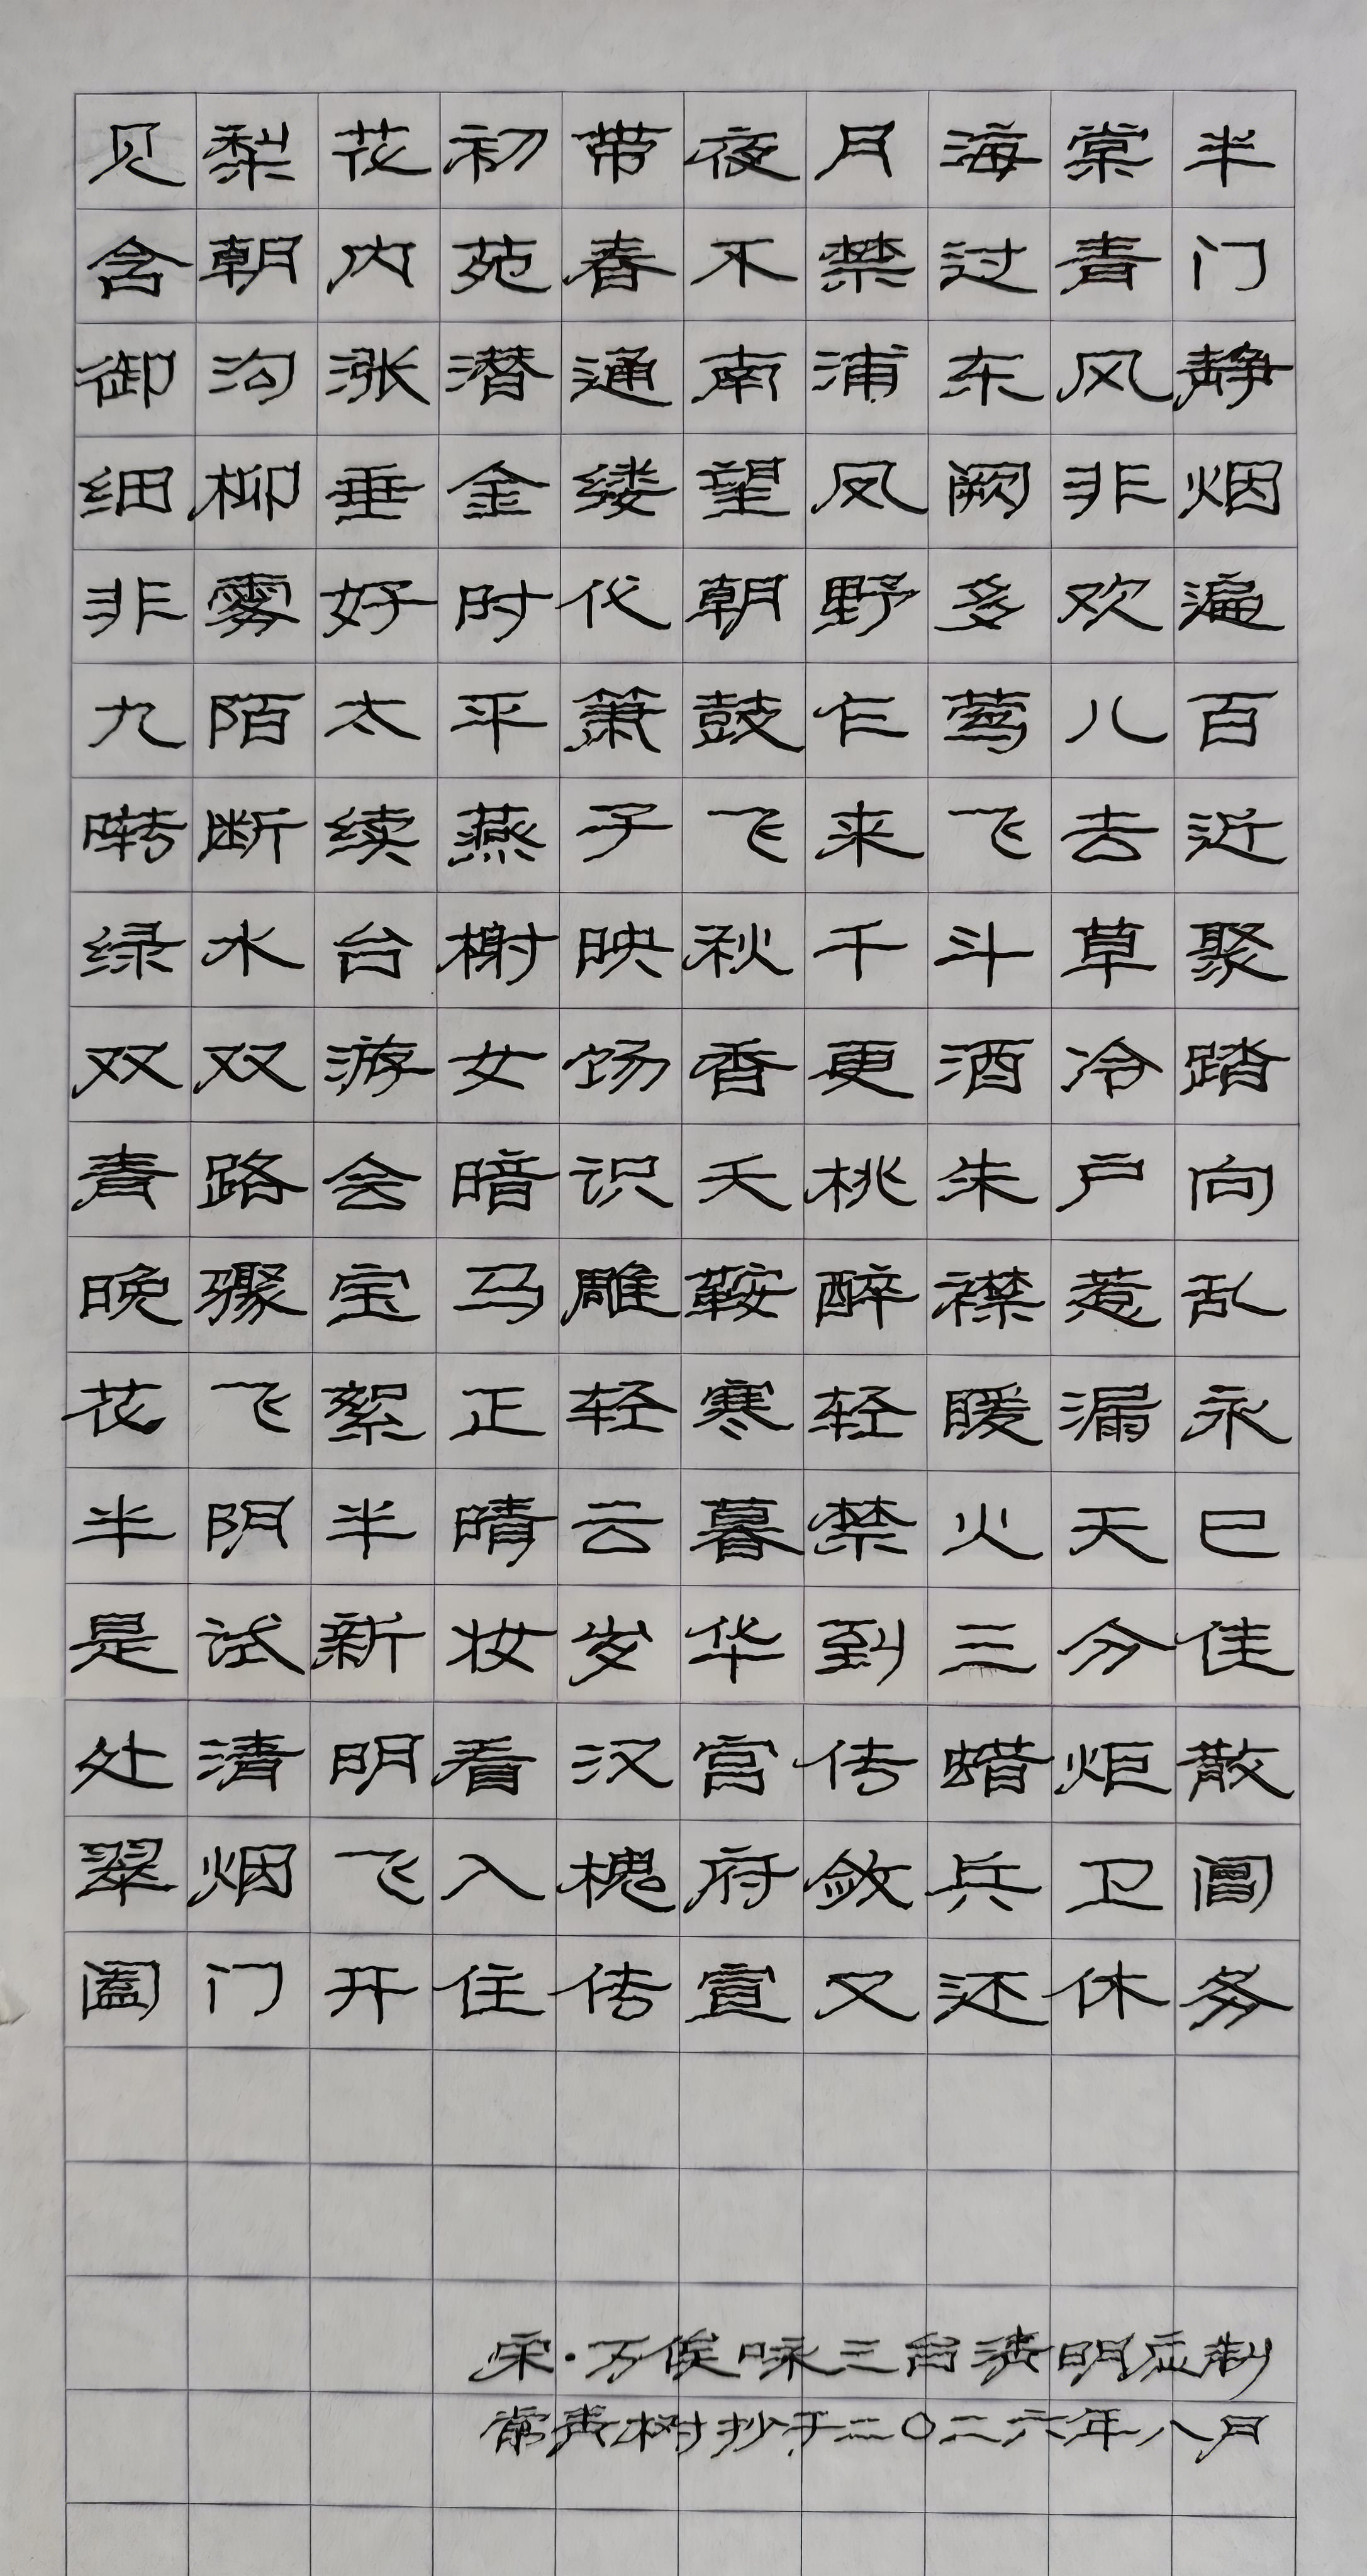 见梨花初带夜月海棠半
含朝内苑春不禁过青门
御沟涨潜通南浦东风静
细柳垂金缕望凤阙非烟
非雾好时代朝野多欢遍
九陌太平箫鼓乍莺儿百
啭断续燕子飞来飞去近
绿水台榭映秋千斗草聚
双双游女饧香更酒冷踏
青路会暗识夭桃朱户向
晚骤宝马雕鞍醉襟惹乱
花飞絮正轻寒轻暖漏永
半阴半晴云暮禁火天已
是试新妆岁华到三分佳
处清明看汉宫传蜡炬散
翠烟飞入槐府敛兵卫阊
阖门开住传宣又还休务
宋·万俟咏三台清明应制
常青树抄于二〇二六年八月